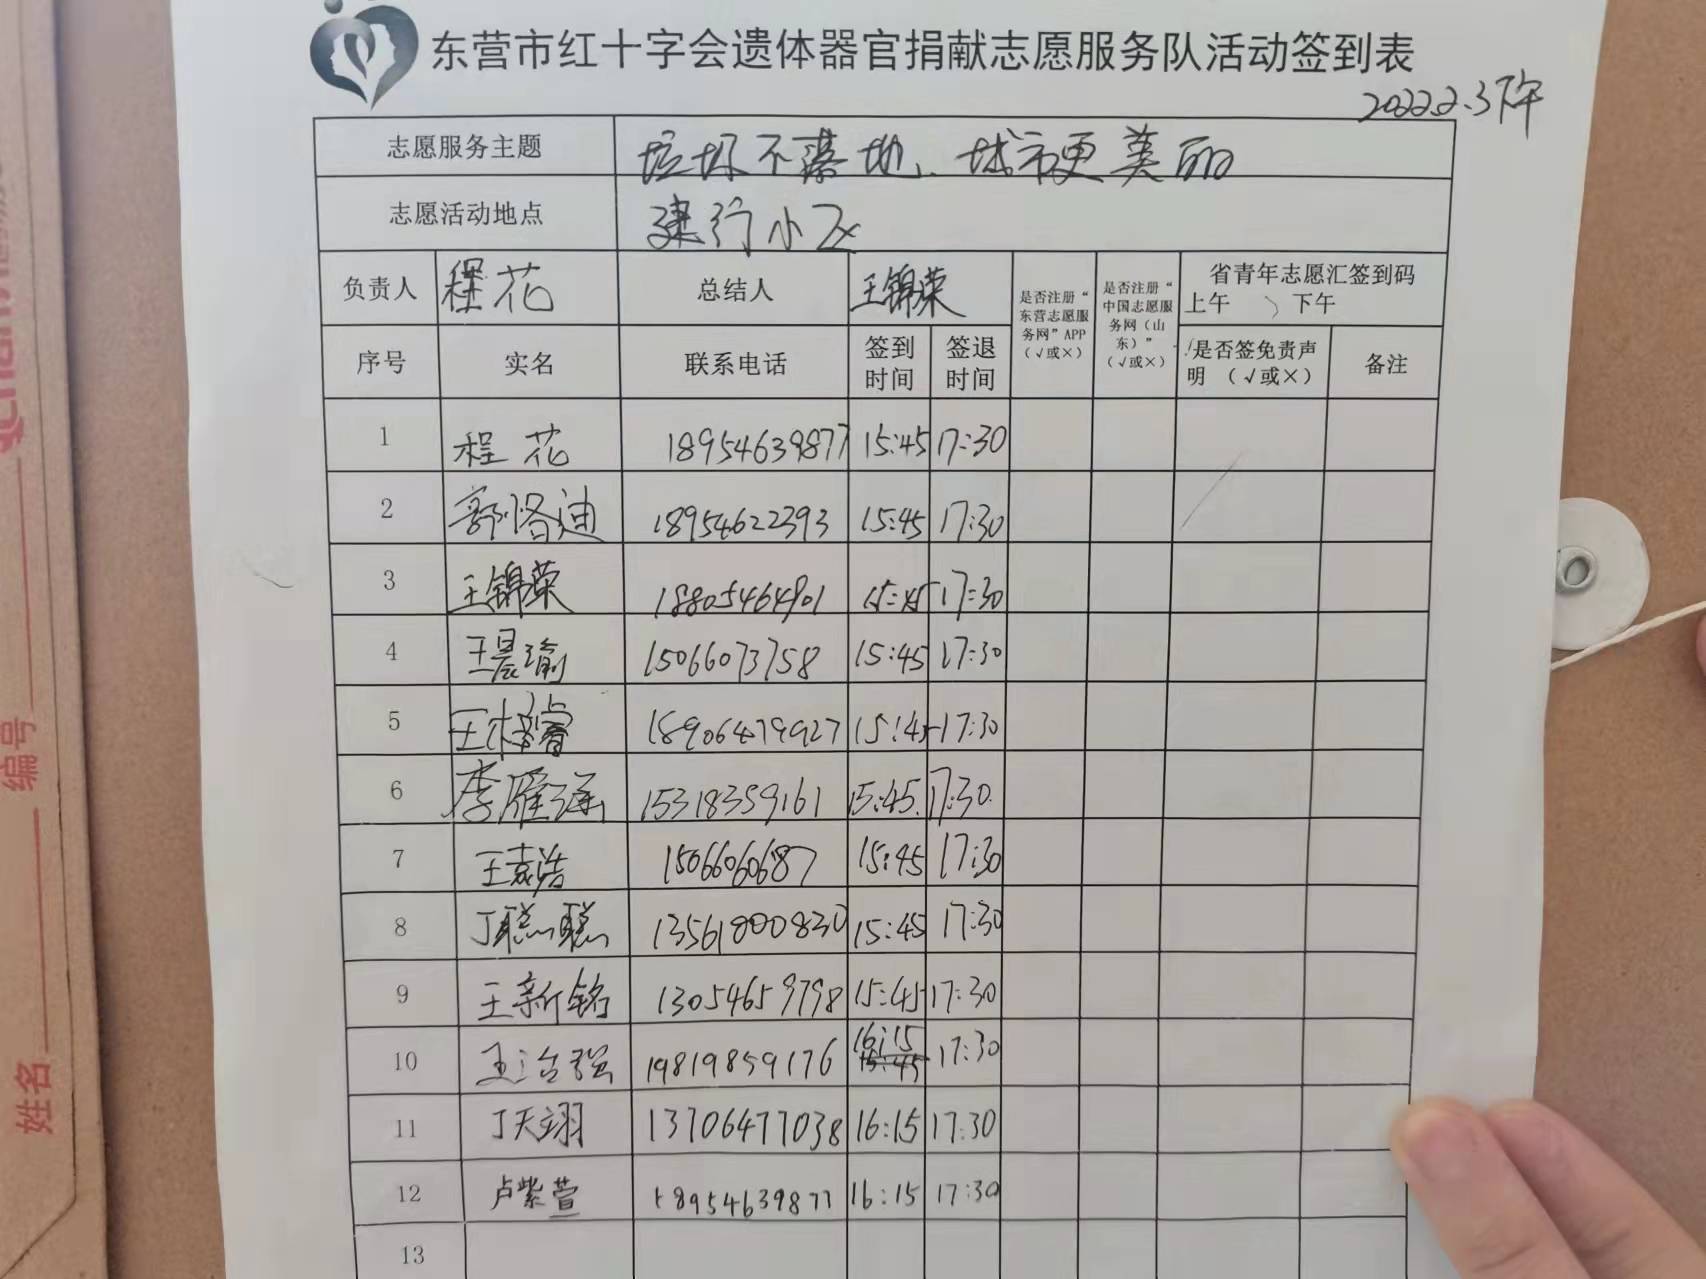 东营市红十字会遗体器官捐献志愿服务队活动签到表
2022.2.3下午
志愿服务主题 垃圾不落地、城市更美丽
志愿活动地点 建行小区
负责人 程花 总结人 王锦荣 是否注册“东营志愿服务网”APP（√或×） 是否注册“中国志愿服务网（山东）”（√或×） 省青年志愿汇签到码 上午 下午
序号 实名 联系电话 签到时间 签退时间 是否签免责声明（√或×） 备注
1 程花 18954639877 15:45 17:30
2 郭恪迪 18954622393 15:45 17:30
3 王锦荣 18805464901 15:45 17:30
4 王晨瑜 15066073758 15:45 17:30
5 王 睿 18906479927 15:45 17:30
6 李雁 15318359161 15:45 17:30
7 王袁浩 1506606687 15:45 17:30
8 丁聪聪 13561800830 15:45 17:30
9 王新铭 13054659798 15:45 17:30
10 王治强 19819859176 16:15 15:45 17:30
11 丁天翊 13706477038 16:15 17:30
12 卢紫萱 18954639877 16:15 17:30
13
编号
姓名